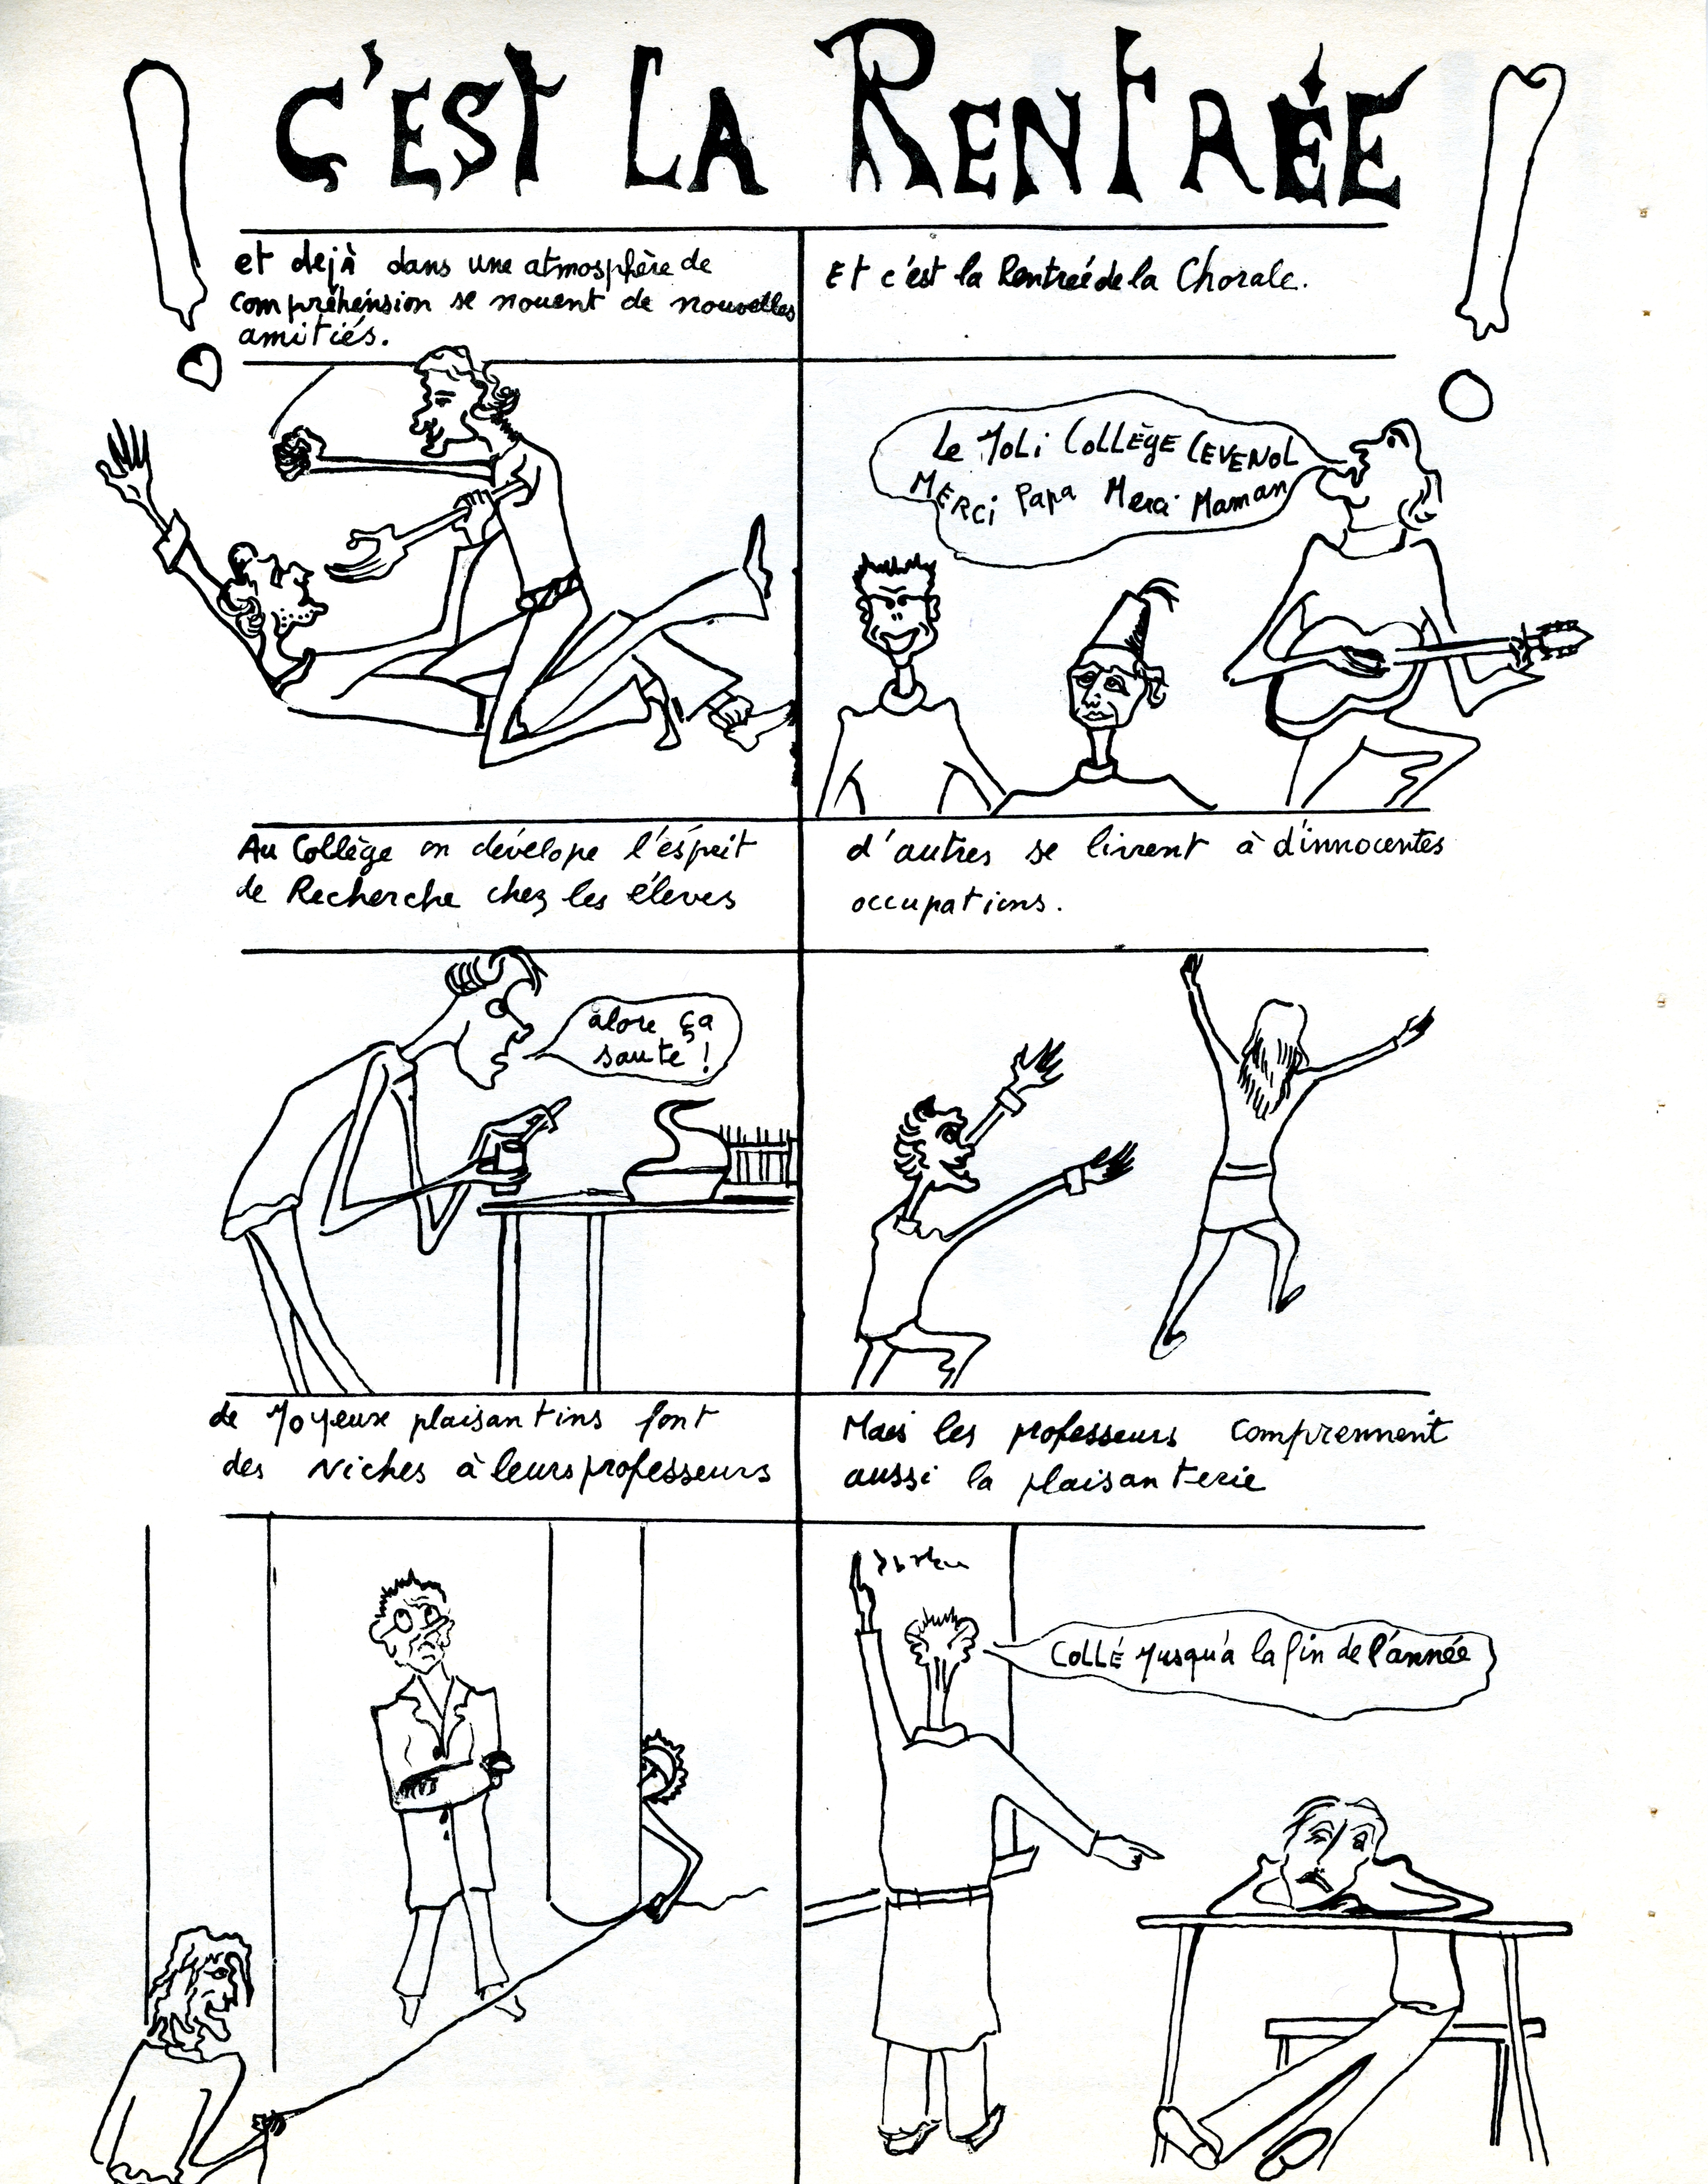 C'EST LA RENTRÉE
et dejà dans une atmosphère de
compréhénsion se nouent de nouvelles
amitiés.
Et c'est la Rentreé de la Chorale.
Le Joli COLLÈGE CEVENOL
MERCi Papa Merci Maman
Au Collège on dévelope l'ésprit
de Recherche chez les éleves
d'autres se livrent à d'innocentes
occupations.
alors ça
saute !
de Joyeux plaisantins font
des Niches à leurs professeurs
Mais les professeurs comprennent
aussi la plaisanterie
COLLÉ Jusqu'à la fin de l'année